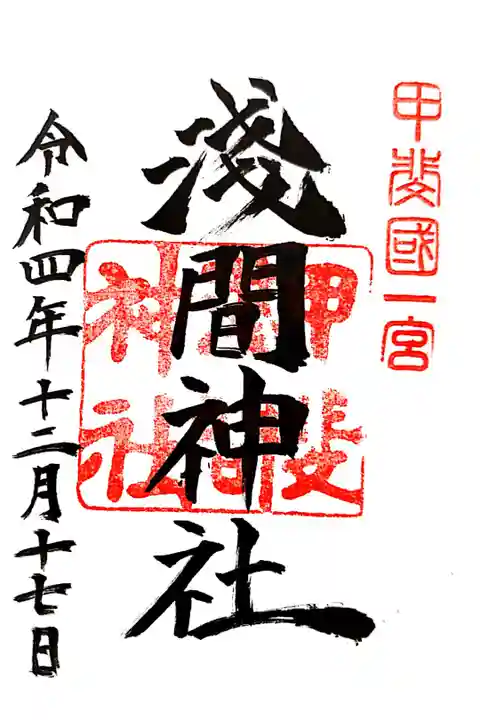 甲斐國一宮
淺間神社
令和四年十二月十七日